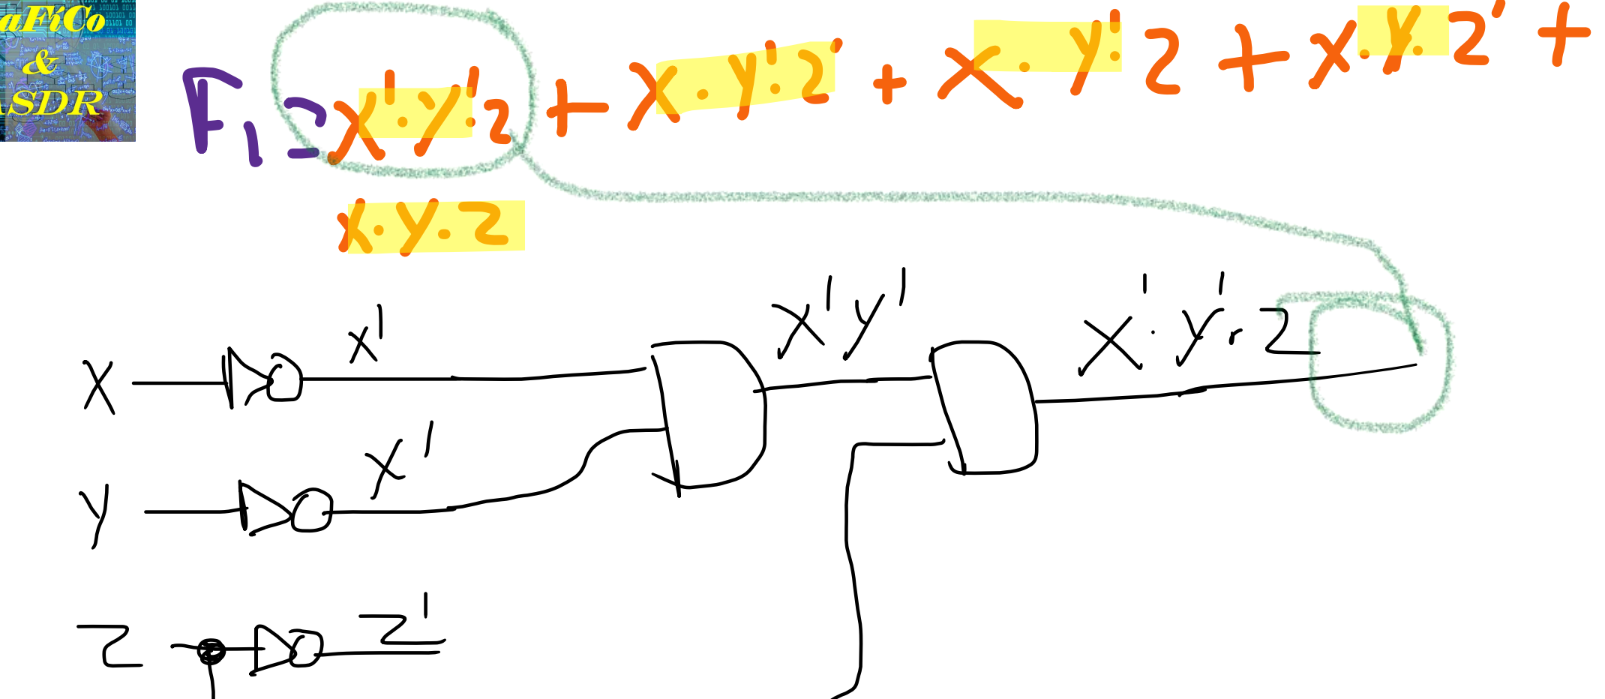 aFiCo
&
ASDR
F1 = x'.y'.z + x.y'.z' + x.y'.z + x.y.z' +
x.y.z
x'
x'y'
x'.y'.z
x
x'
y
z'
z